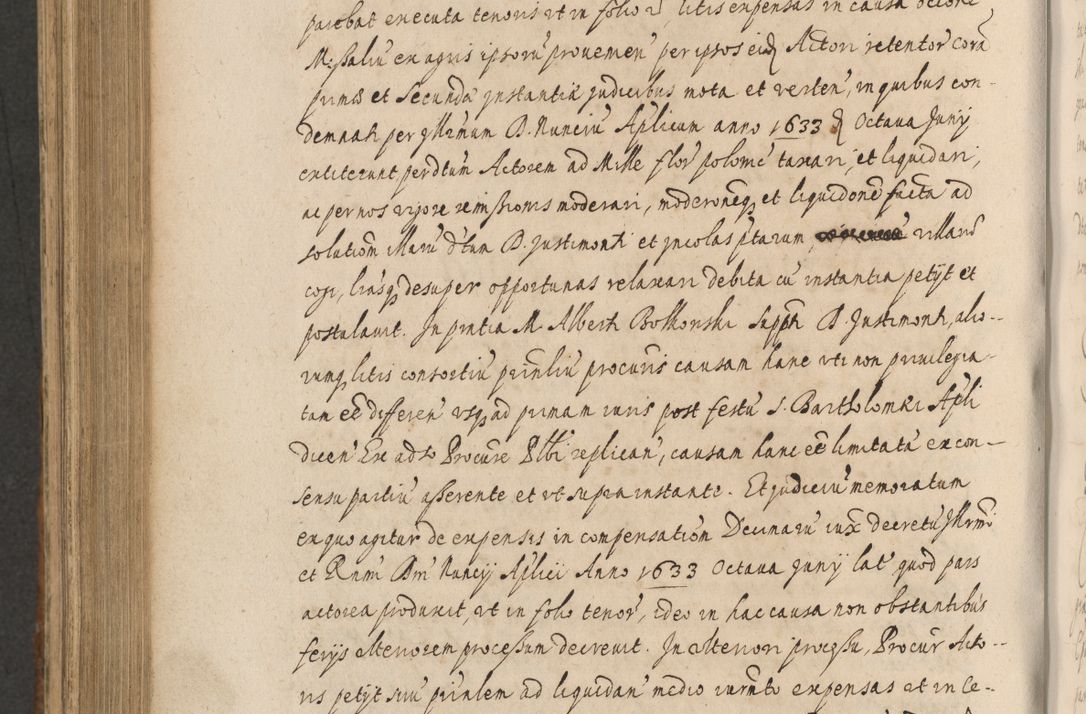 parebat executa tenoris ut in folio 2, litis expensas in causa occone
M: saliu ex agris ipsorũ provemen̾ per ipsos eid Actori retentor̾ corã
primæ et Secundæ instantiæ judicibus mota et verten̾, in quibus con-
demnati per Illrmum D. Nunciũ Aplicum anno 1633 d Octava Junij
extiterunt per dtum Actorem ad Mille flor̾ polonic̾ taxari, et liquidari,
ac per nos vigore remissionis moderari, moderoneq et liquidone facta ad
solutiom illarũ d̾tum D. Justimonti et incolas p̾tarum, villarũ
cogi, lrasq desuper opportunas relaxari debita cũ instantia petijt et
postulavit. In pntia M. Alberti Bolkonski Supph D. Justimonti, alio-
rumq litis consortiũ prinliũ procuris causam hanc uti non privilegia-
tam eẽ differen̾ usq ad primam iuris post festũ S. Bartholomæi Apli
dicen̾ Ex adso Procure Plbi replican̾, causam hanc eẽ limitatã ex con-
sensu partiũ asserente et ut supra instante. Et judiciũ memoratum
ex quo agitur de expensis in compensatiom Decimarũ iux decretũ Illrmi
et Rnmi Dni Nuncij Aplici Anno 1633 Octava Junij lat̾ quod pars
actorea produxit, ut in folio tenor̾, ideo in hac causa non obstantibus
ferijs ulteriorem processum decrevit. In ulteriori processu, Procur̾ Acto-
ris petijt suũ prinlem ad liquidan̾ medio iurnto expensas ut in Ce-